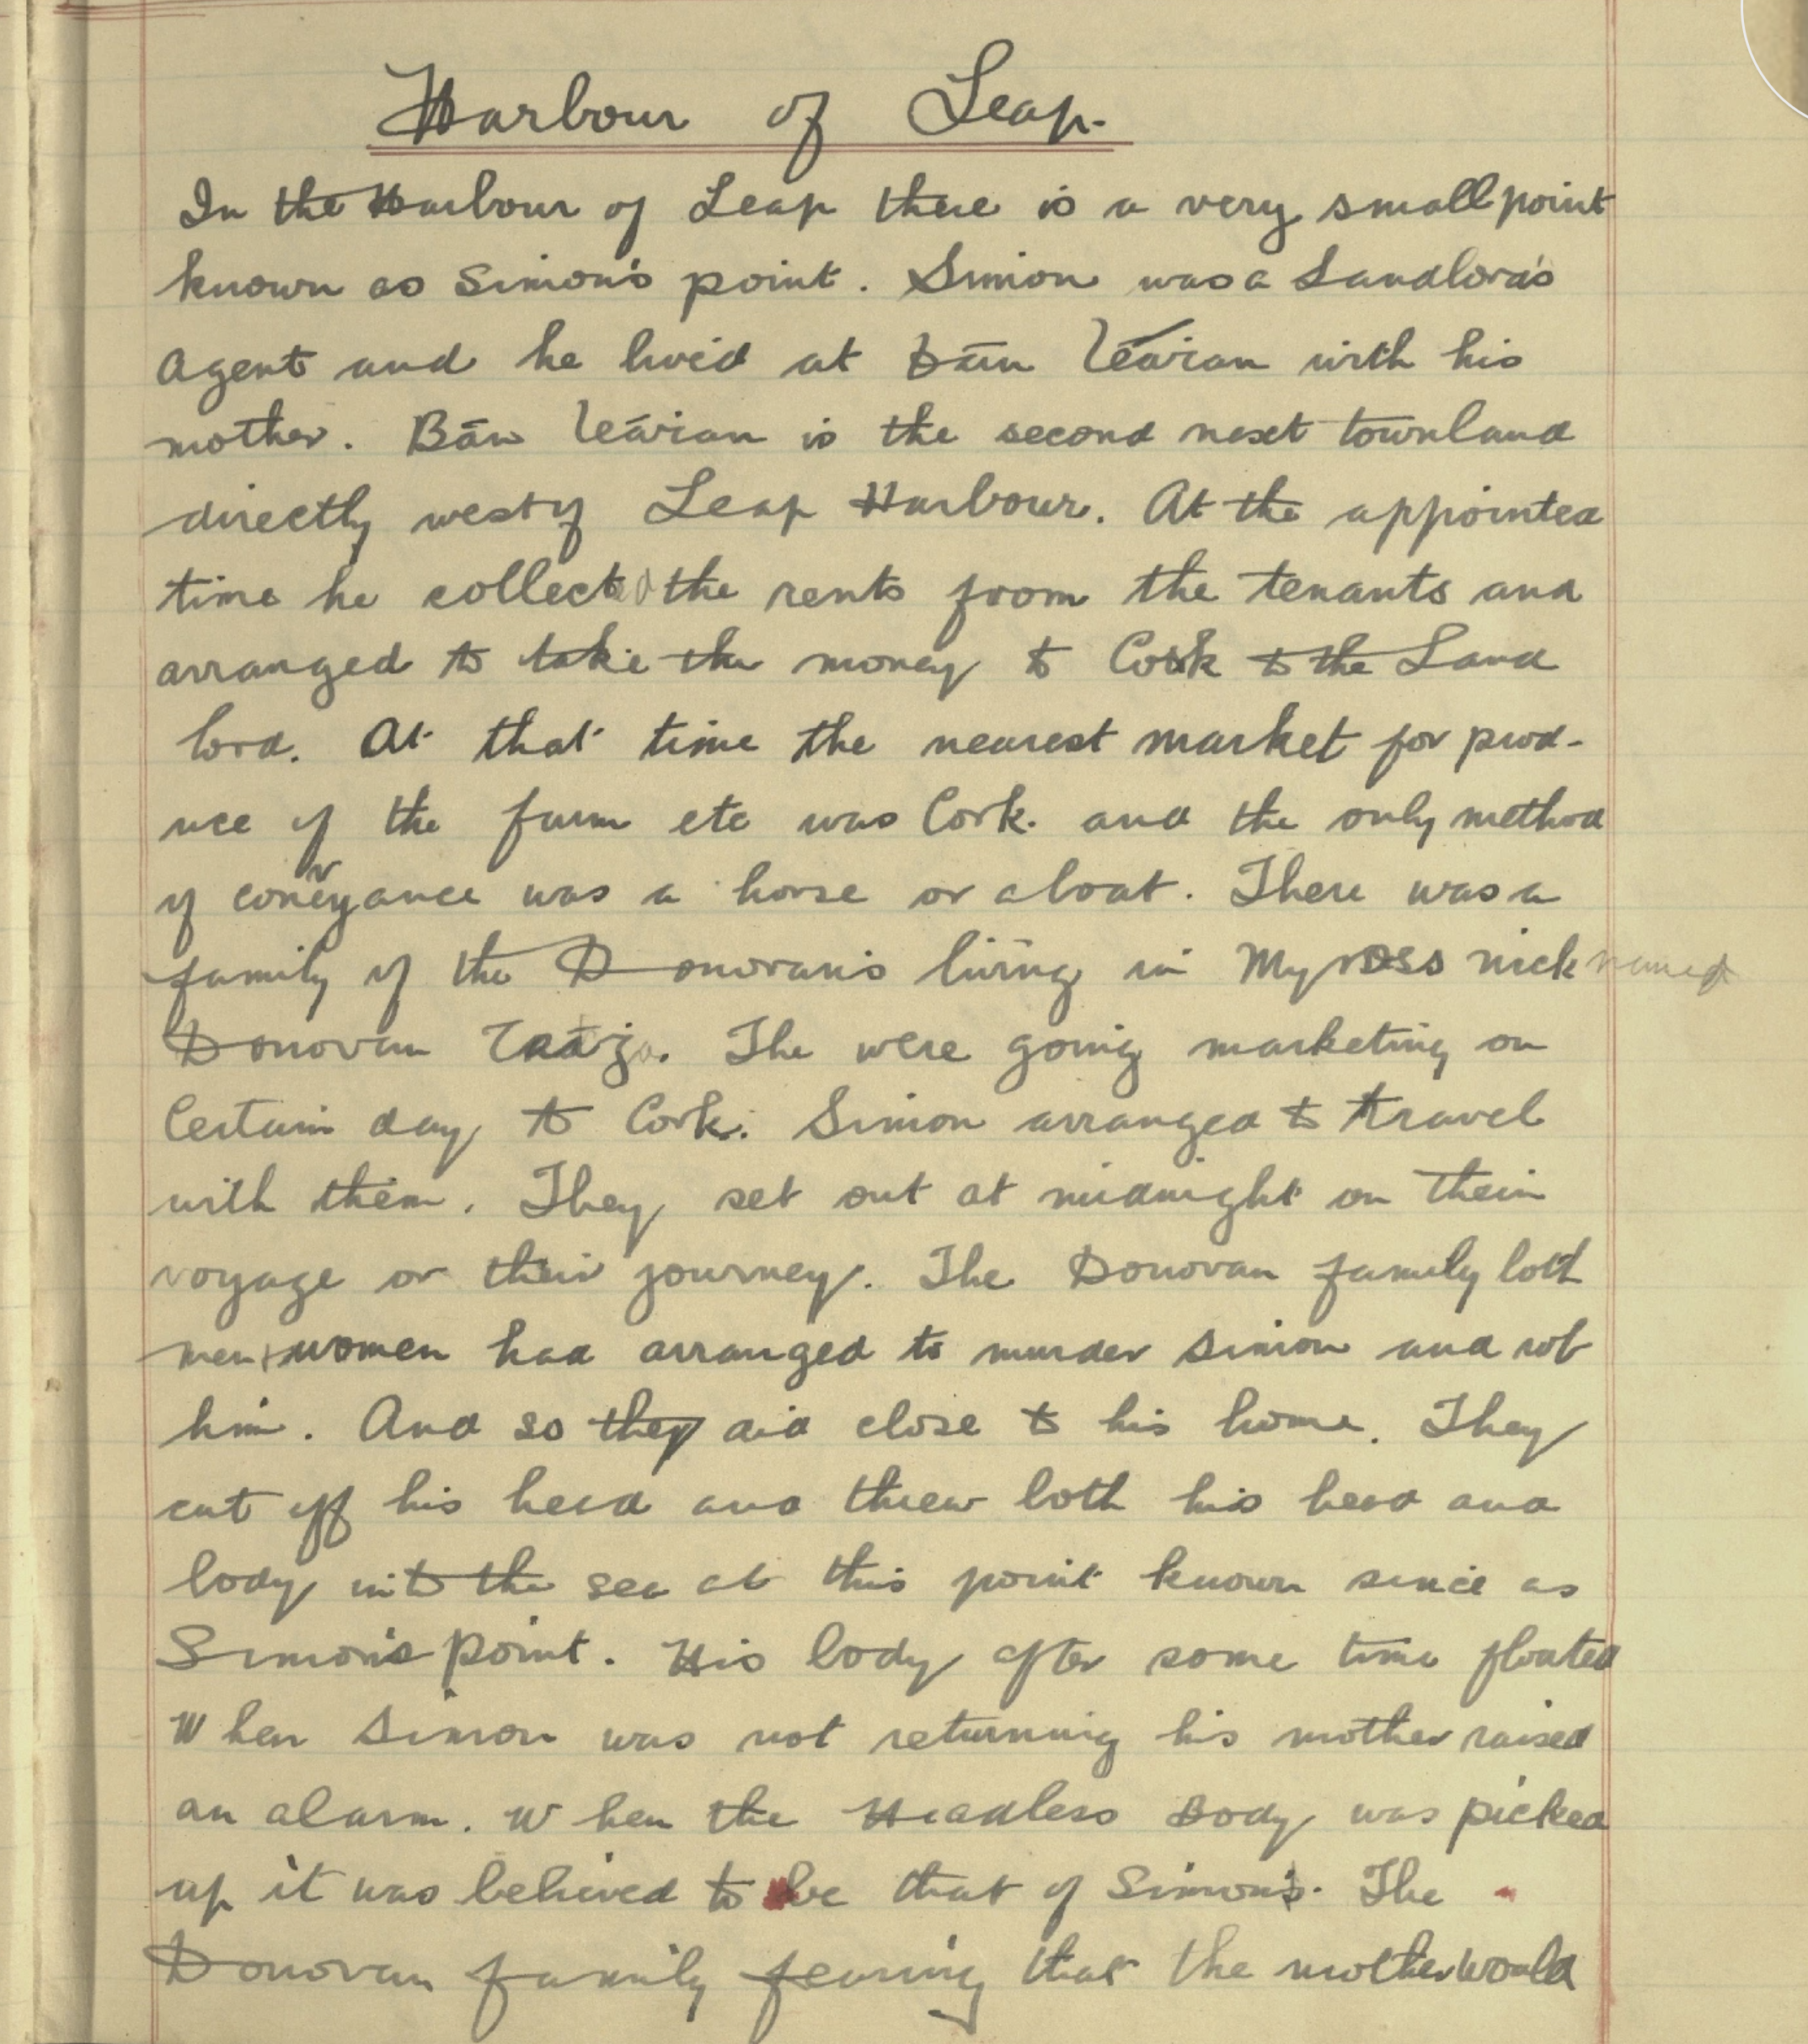 Harbour of Leap.
In the Harbour of Leap there is a very small point
known as Simon's point. Simon was a Landlord's
Agent and he lived at Bān with his
mother. Bān is the second next townland
directly west of Leap Harbour. At the appointed
time he collected the rents from the tenants and
arranged to take the money to Cork to the Land
lord. At that time the nearest market for prod-
uce of the farm etc was Cork. and the only method
of conveyance was a horse or a boat. There was a
family of the Donovan's living in Myross nicknamed
Donovan. The were going marketing on
Certain day to Cork. Simon arranged to travel
with them. They set out at midnight on their
voyage or their journey. The Donovan family both
men + women had arranged to murder Simon and rob
him. And so they did close to his home. They
cut off his head and threw both his head and
body into the sea at this point known since as
Simon's point. His body after some time floated
When Simon was not returning his mother raised
an alarm. When the Headless Body was picked
up it was believed to be that of Simon's. The
Donovan family fearing that the mother would